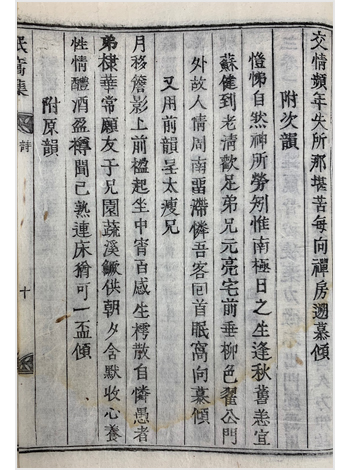 交情頻年失所那堪苦每向禪房邇墓傾
附次韻
愷悌自然神所勞矧惟南極日之生逢秋舊恙宜
蘇健到老淸歡足弟兄元亮宅前垂柳色翟公門
外故人情周南留滯憐吾客回首眠窩向暮傾
又用前韻呈太瘦兄
月移簷影上前楹起坐中宵百感生樗散自憐愚者
弟棣華常願友于兄園蔬溪鱖供朝夕含默收心養
性情醴酒盈樽聞已熟連床猶可一盃傾
附原韻
窩集
十